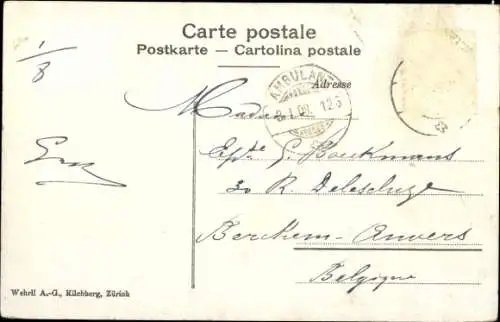 Carte postale
Postkarte — Cartolina postale
Adresse
AMBULANT
1/8
Madame
Epse G. Boeckmans
30 R. Delescluze
Berchem-Anvers
Belgique
Wehrli A.-G., Kilchberg, Zürich